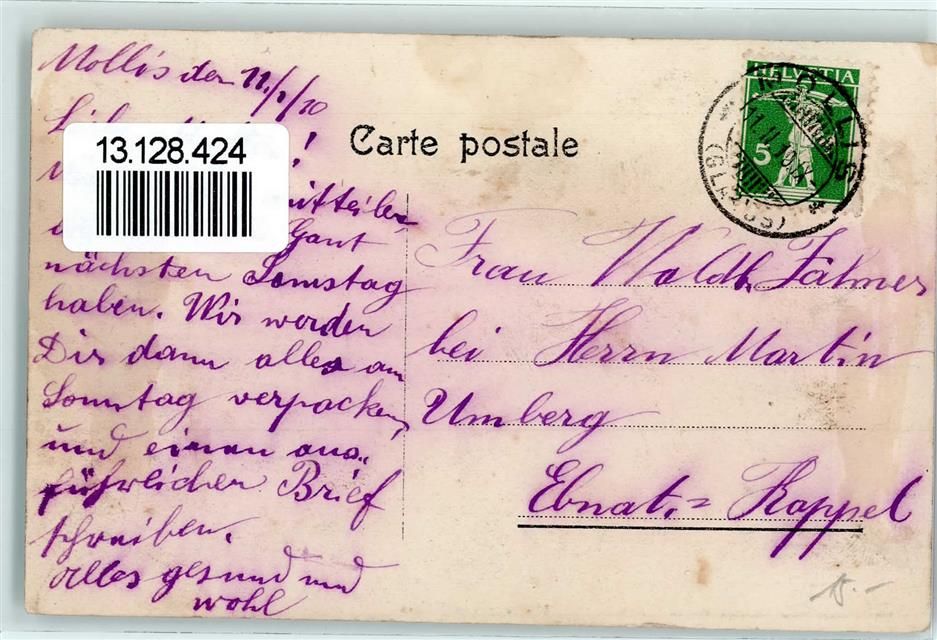 Mollis den 11./1/10
!
13.128.424
mitteilen
Gant
nächsten Samstag
haben. Wir werden
Dir dann alles am
Sonntag verpacken
und einen aus„
führlichen Brief
schreiben.
Alles gesund und
wohl
Carte postale
HELVETIA
5
MOLLIS
(GLARUS)
Frau Waldb. Fähner
bei Herrn Martin
Umberg
Ebnat.= Kappel
15.-